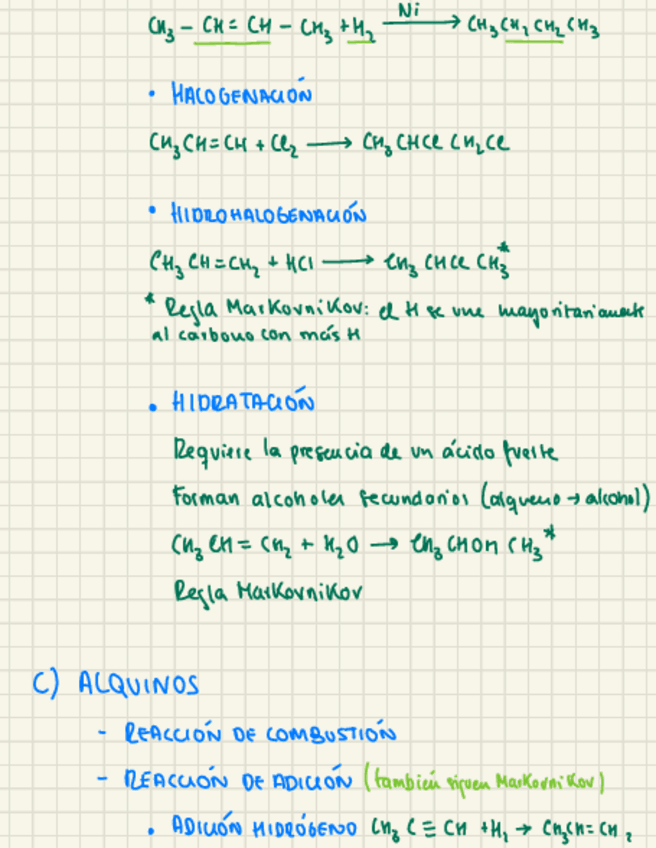 CH₃ - CH = CH - CH₃ + H₂ —Ni→ CH₃CH₂CH₂CH₃
• HALOGENACIÓN
CH₃CH=CH + Cl₂ → CH₃CHCl CH₂Cl
• HIDROHALOGENACIÓN
CH₃CH=CH₂ + HCl → CH₃CHCl CH₃*
* Regla Markovnikov: el H se une mayoritariamente
al carbono con más H
• HIDRATACIÓN
Requiere la presencia de un ácido fuerte
Forman alcoholes secundarios (alqueno → alcohol)
CH₃CH = CH₂ + H₂O → CH₃CHOH CH₃*
Regla Markovnikov
C) ALQUINOS
- REACCIÓN DE COMBUSTIÓN
- REACCIÓN DE ADICIÓN (también siguen Markovnikov)
• ADICIÓN HIDRÓGENO CH₃C≡CH + H₂ → CH₃CH=CH₂